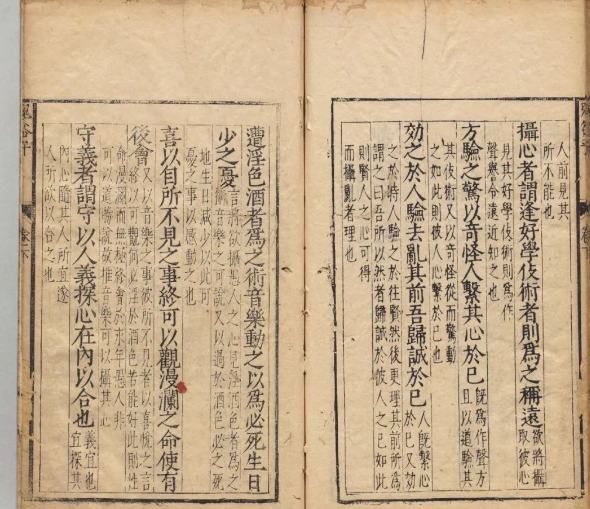 人前見其
所不能也
攝心者謂逢好學伎術者則爲之稱遠
欲將攝
取彼心
見其好學伎術則爲作
聲譽令遠近知之也
方驗之驚以奇怪人繫其心於己
旣爲作聲方
且以道驗其
其伎術又以奇怪從而驚動
之如此則彼人心繫於己也
効之於人驗去亂其前吾歸誠於己
人旣繫心
於己又効
之於時人驗之於往賢然後更理其前所爲
謂之曰吾所以然者歸誠於彼人之己如此
則賢人之心可得
而攝亂者理也
遭淫色酒者爲之術音樂動之以爲必死生日
少之憂
言將欲攝愚人之心見淫酒色者爲之
術音樂之可說又以過於酒色必之死
地生日減少以此可
憂之事以感動之也
喜以自所不見之事終可以觀漫瀾之命使有
後會
又以音樂之事彼所不見者以喜悅之言
終以可觀何必淫於酒色若能好此則性
命漫瀾而無極終會於永年愚人非
可以道說故推音樂可以攝其心
守義者謂守以人義探心在內以合也
義宜也
宜探其
內心隨其人所宜遂
人所欲以合之也
鬼谷子
卷下